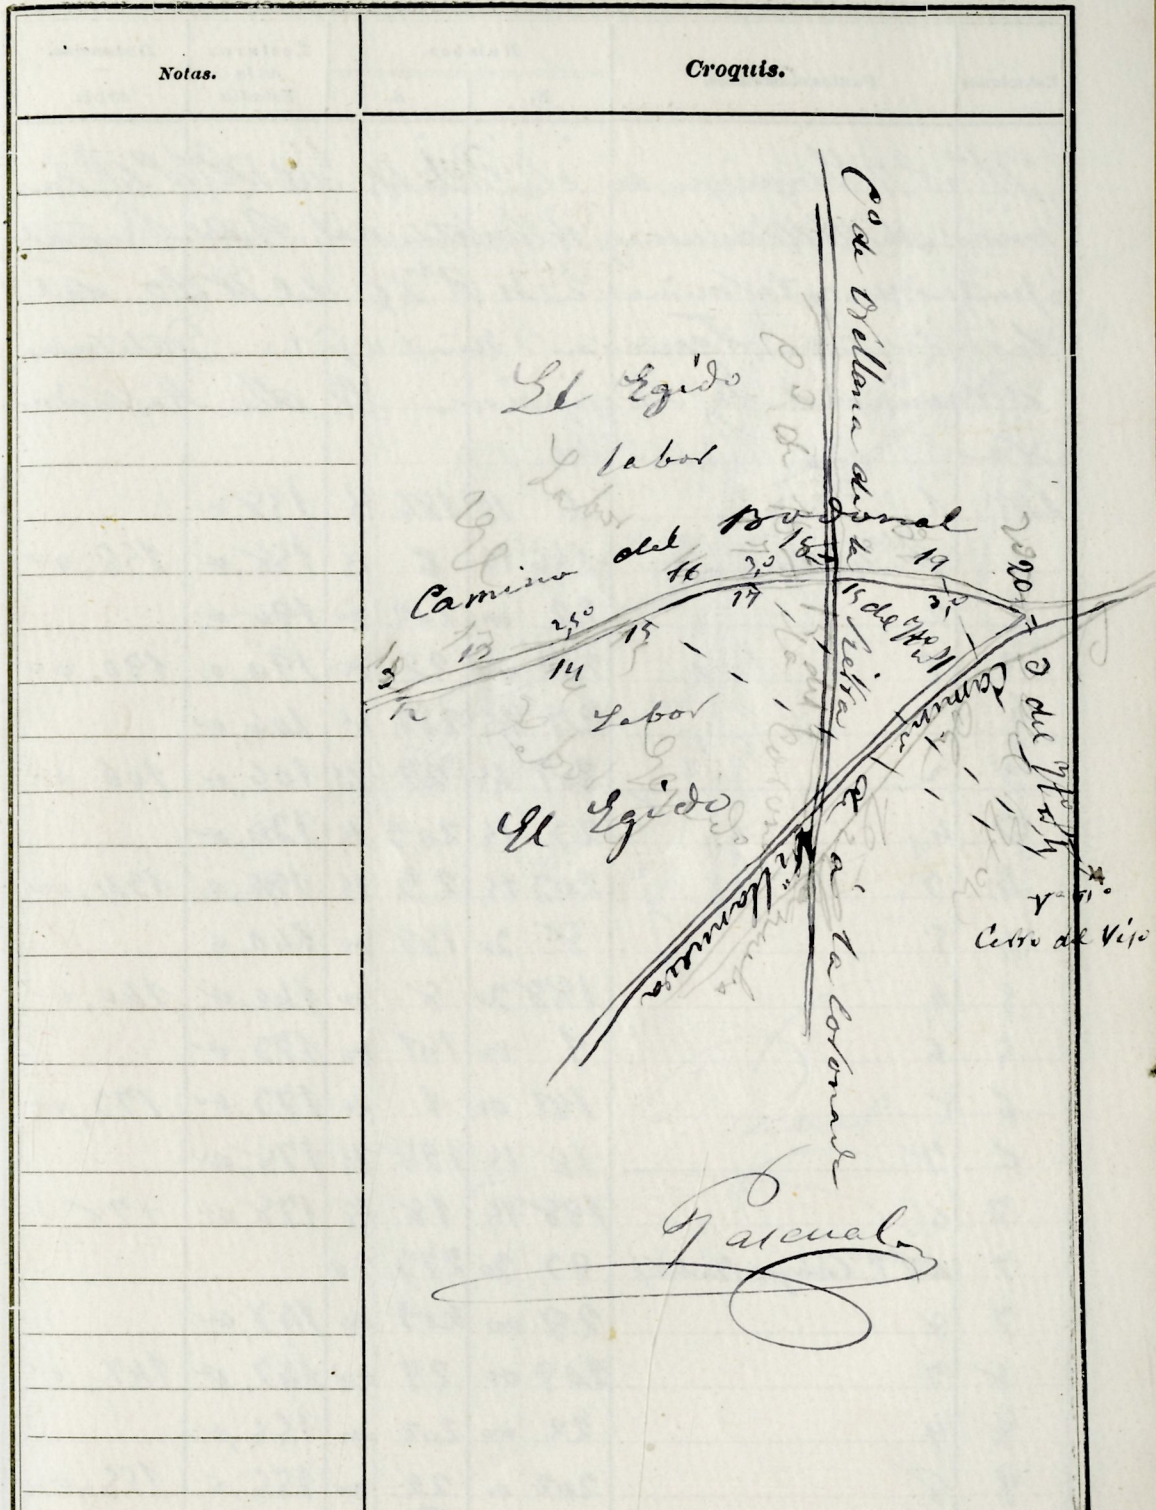 Notas.
Croquis.
Cº de Orellana de la Sierra á la Coronada
El Egido
labor
Camino del Bodonal
13
12
13
2,50
14
15
16
3,0
17
18
19
3,0
20
15 del Itº
3 del Itº
Labor
El Egido
Camino de Villanueva
Vº
Cerro del Viso
Pascual